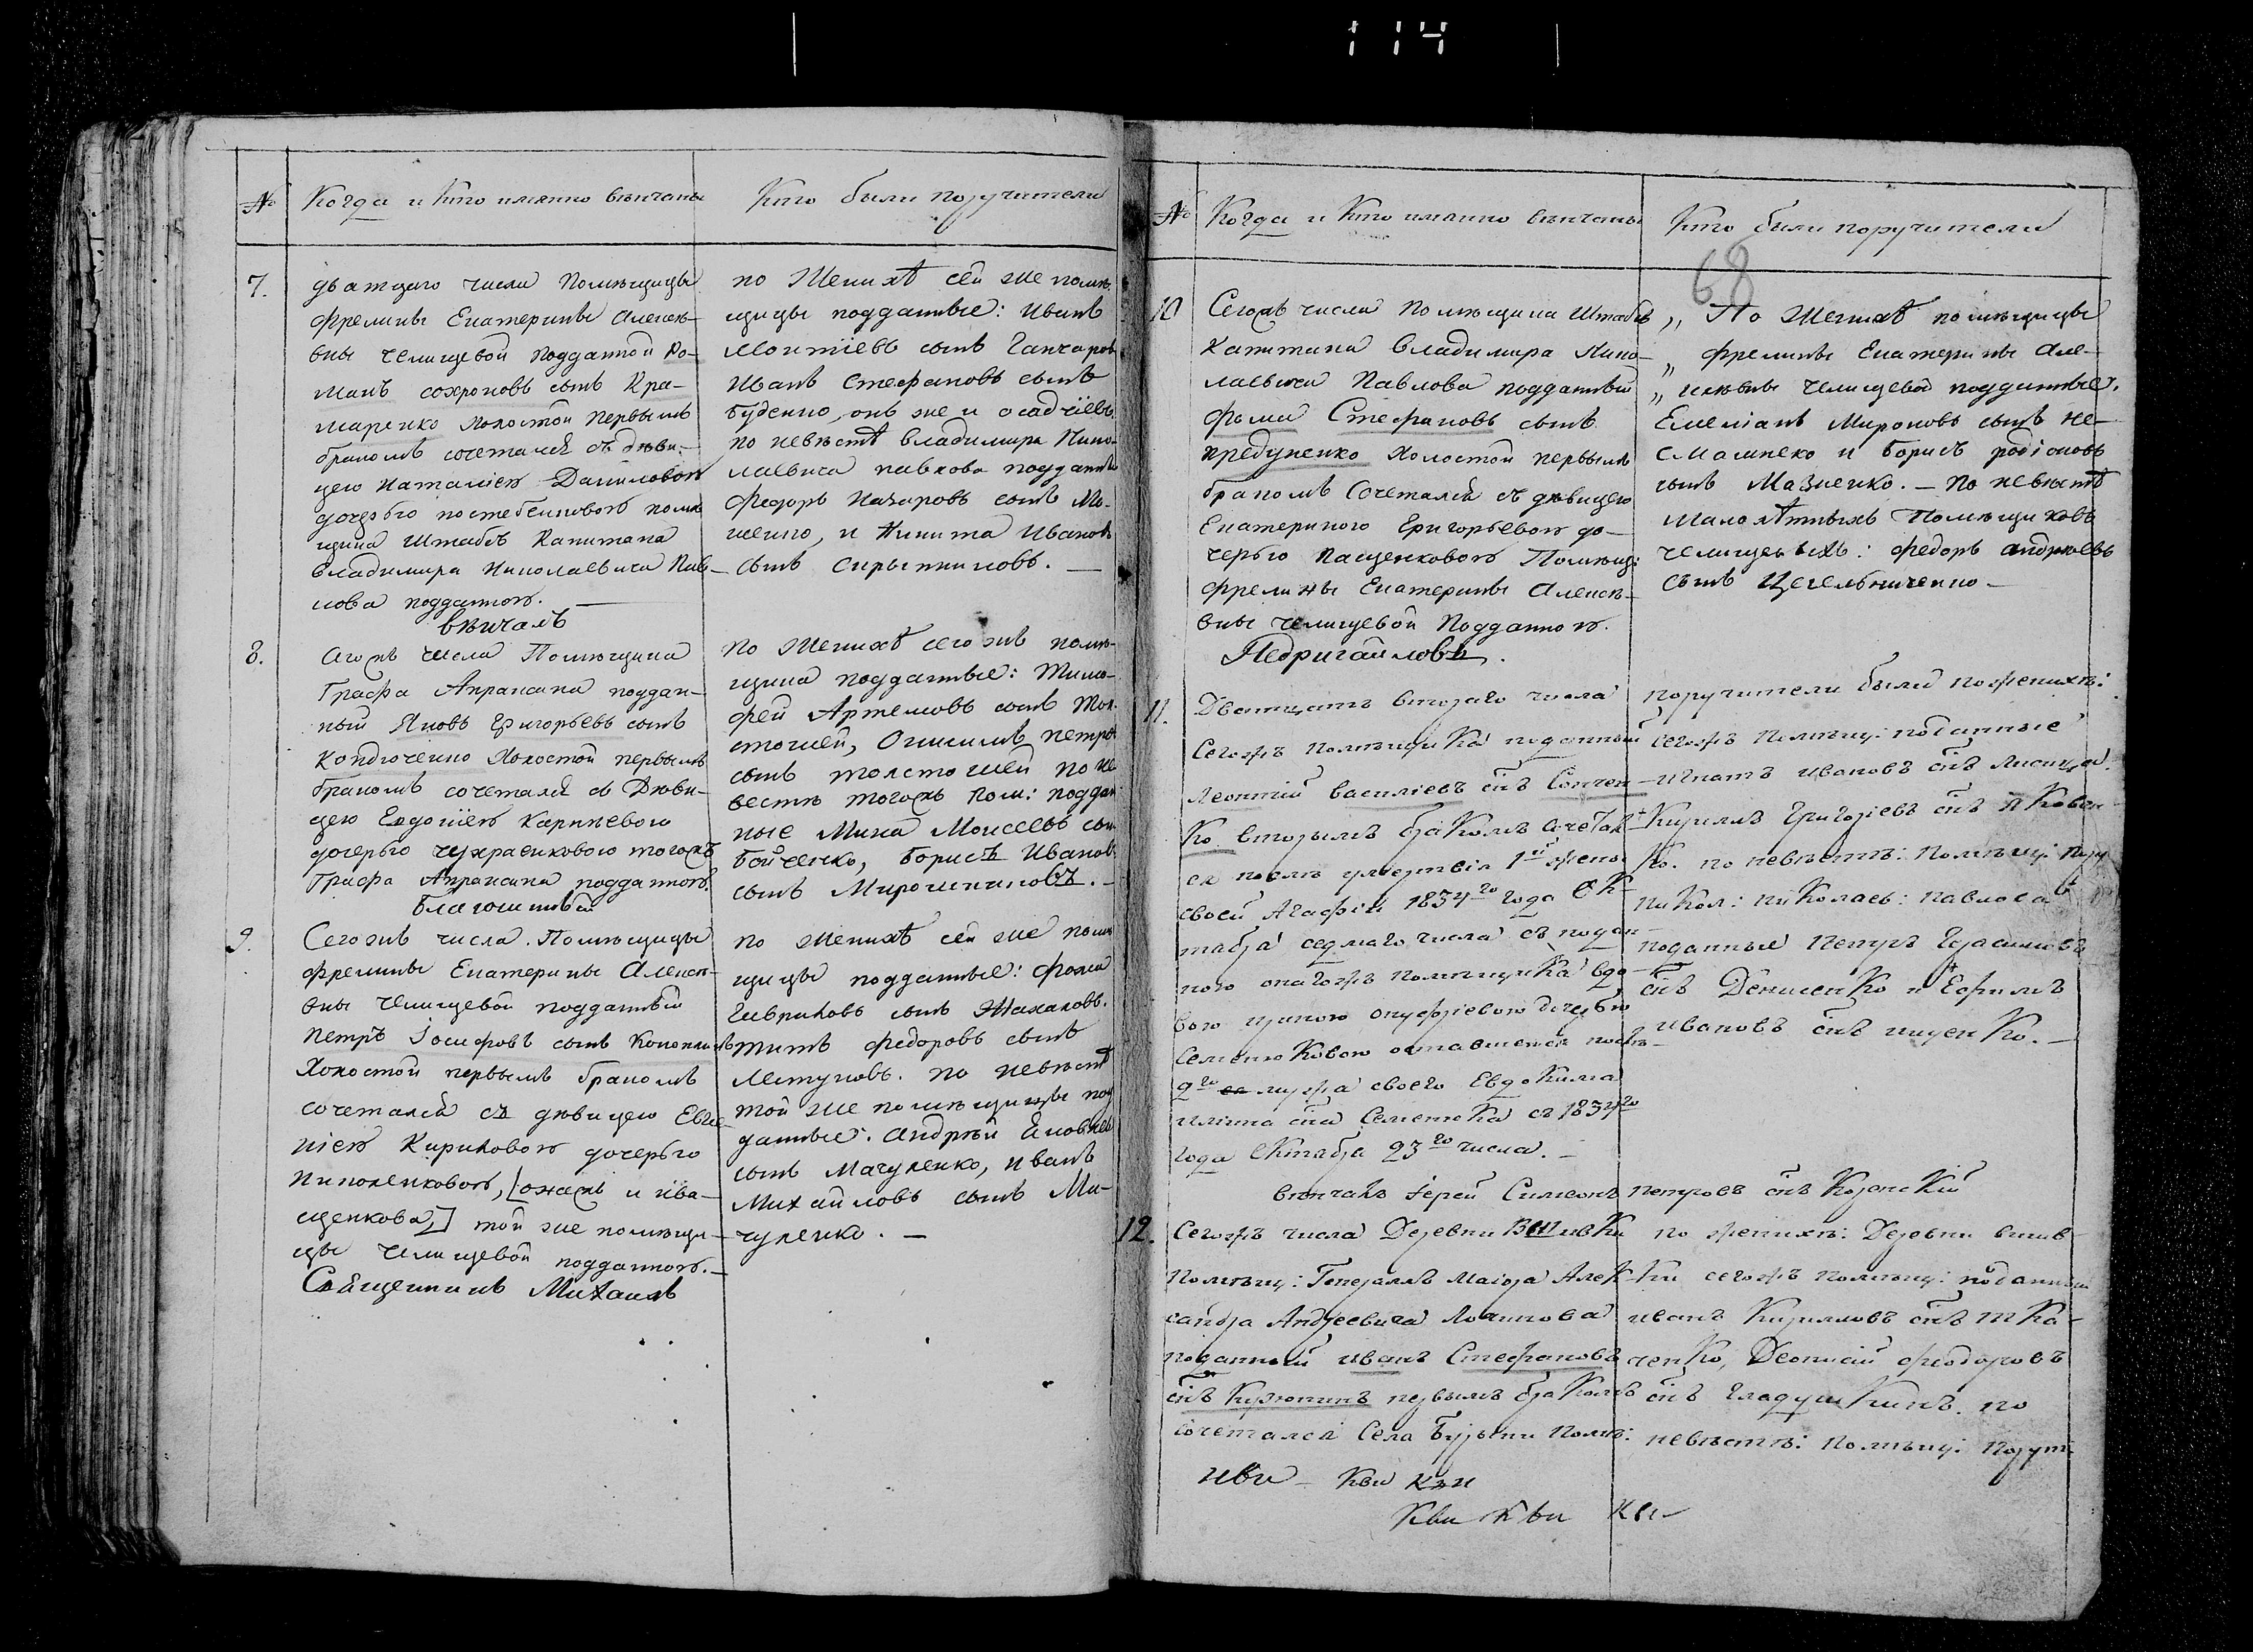 114
№ Когда и кто имянно венчаны
Кто были поручители
7. дватцаго числа Помѣщицы
фрелины Екатерины Алексѣ-
вны Челищевой подданной Ро-
манъ сохроновъ сынъ Кра-
маренко холостой первымъ
бракомъ сочетался съ дѣви-
цею Наталіею Даниловою
дочерью помѣ-
щика Штабсъ Капитана
Владимира Николаевича Пав-
лова подданною.
вѣнчалъ
по Женихѣ сей же помѣ-
щицы подданные: Иванъ
сынъ Ганчаровъ
Иванъ Стефановъ сынъ
Буденно, онъ же и осадчіевъ.
по невѣстѣ Владимира Нико-
лаевича павлова подданные
Федоръ Назаровъ сынъ Мо-
и Никита Ивановъ
сынъ Скрыпниковъ.
8. Агожъ числа Помѣщика
Графа Апраксина поддан-
ный Яковъ Григорьевъ сынъ
Кондюченко Холостой первымъ
бракомъ сочетался съ Дѣви-
цею Евдокіею Карпѣевою
дочерью тогожъ
Графа Апраксина подданною.
Благочинный
по Женихѣ сего же помѣ-
щика подданные: Тимо-
фей Артемовъ сынъ Тол-
стошей, Онисимъ петровъ
сынъ толстошей по не
вестѣ тогожъ пом: поддан
ные Мина Моисеевъ сынъ
Бойченко, Борисъ Ивановъ
сынъ Мирошниковъ.
9. Сего же числа Помѣщицы
фрелины Екатерины Алексѣ-
вны Челищевой подданный
Петръ Іосифовъ сынъ
Холостой первымъ бракомъ
сочетался съ дѣвицею Евге-
ніею Кириковою дочерью
[онажъ и ива-
щенкова,] той же помѣщи-
цы Челищевой подданною.
Священникъ Михаилъ
по женихѣ сей же помѣ
щицы подданные: фома
Гавриловъ сынъ Жахаловъ.
титъ федоровъ сынъ
Летуновъ. по невѣстѣ
той же помѣщицы под
данные: андрѣй Яковлевъ
сынъ Мачуленко, иванъ
Михайловъ сынъ Ма-
чуленко.
№ Когда и кто имянно вѣнчаны
Кто были поручители
68
10 Сегожъ числа Помѣщика Штабсъ
Капитана Владимира Нико-
лаевича Павлова подданный
фома Стефановъ сынъ
Холостой первымъ
бракомъ Сочетался съ дѣвицею
Екатериною Григорьевою до-
черью Пащенковою Помѣщ:
фрелины Екатерины Алексѣ-
вны Челищевой Подданною.
Недригайловъ.
„ По Женихѣ помѣщицы
„ фрелины Екатерины Але-
„ ксѣвны Челищевой подданные,
Емеліанъ Мироновъ сынъ не-
и Борисъ родіоновъ
сынъ Мазненко. — По невѣстѣ
Малолѣтныхъ Помѣщиковъ
челищевыхъ: федоръ андрѣевъ
сынъ Цегельниченко —
11. Дватцать втораго числа
Сегожъ помѣщика поданный
Леонтій Василіевъ снъ Сопчен-
ко вторымъ бракомъ сочетал-
ся послѣ умертвія 1й жены
своей Агафіи 1834го года Ок-
тября седмаго числа съ подан-
ною онагожъ помѣщика вдо-
вою ириною онуфріевою дочерью
Семенюковою оставшеюся послѣ
2го мужа своего Евдокима
иліина сна Семенюка съ 1834го
года Октября 23го числа.
поручители были поженихѣ:
сегожъ Помѣщ: поданные
игнатъ ивановъ снъ Лисица.
Кирилъ Григоріевъ снъ Яковен
ко. по невѣстѣ: помѣщ:
Никол: Николаев: Павлова
поданные Петръ Герасимовъ
снъ Денисенко и Ефимъ
ивановъ снъ ищенко.
вѣнчалъ Іерей Симеонъ Петровъ снъ
12. Сегожъ числа Деревни Вшивки
помѣщ: Генералъ Маіора Алек-
сандра Андреевича
поданный иванъ Стефановъ
снъ Курюпинъ первымъ бракомъ
сочетался Села Бурыни Помѣ:
по женихѣ: Деревни Вшив-
ки сегожъ помѣщ: поданный
иванъ Кирилловъ снъ Тка-
ченко, Деонисій феодоровъ
снъ Гладушкинъ. по
невѣстѣ: Помѣщ: Порут-